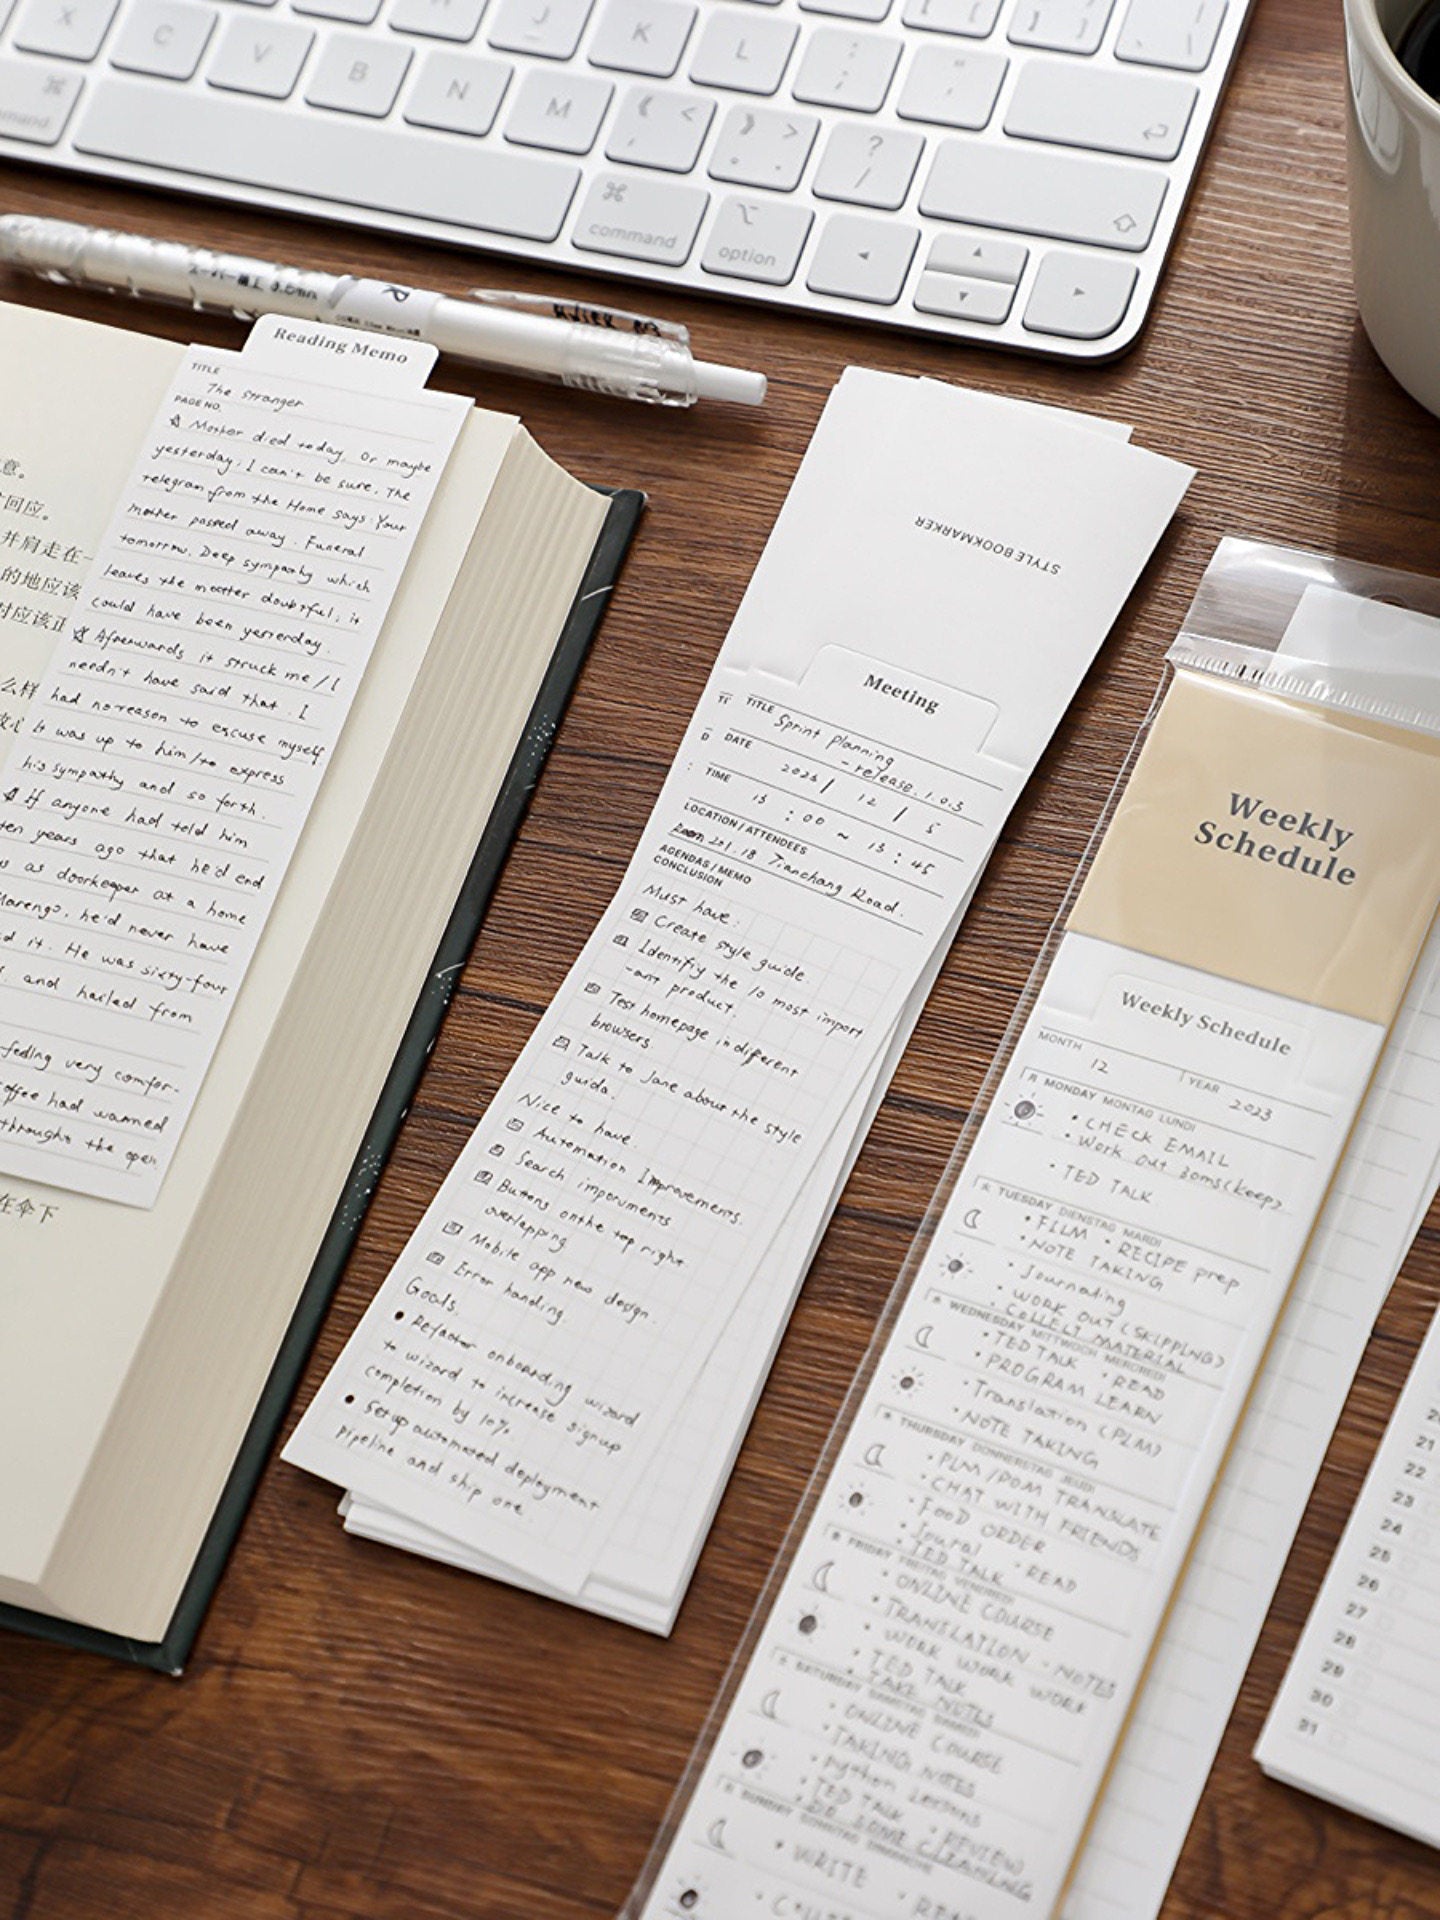 X
C
V
B
N
M
J
K
L
:
;
"
'
《 <
,
》 >
。 .
?
/
command
option
command
スーパー細工 0.5mm
Reading Memo
TITLE
The stranger
PAGE NO.
Mother died today. Or maybe
yesterday; I can't be sure. The
telegram from the Home says: Your
mother passed away. Funeral
tomorrow. Deep sympathy which
leaves the matter doubtful; it
could have been yesterday.
Afterwards it struck me / I
needn't have said that. I
had no reason to excuse myself
it was up to him / to express
his sympathy and so forth.
If anyone had told him
ten years ago that he'd end
as doorkeeper at a home
Marengo, he'd never have
it. He was sixty-four
and hailed from
feeling very comfor-
coffee had warmed
through the open
意。
回应。
并肩走在一
的地应该
时应该正
么样
在伞下
STYLE BOOKMARKER
Meeting
TITLE Sprint planning
- release. 1.0.3
DATE 2023 / 12 / 5
TIME 13 : 00 ~ 13 : 45
LOCATION / ATTENDEES
Room 201. 18 Tianchang Road.
AGENDAS / MEMO
CONCLUSION
Must have:
Create style guide
Identifiy the 10 most import
-ant product.
Test homepage in different
browsers
Talk to Jane about the style
guida.
Nice to have.
Automation Improvements.
Search imporuments
Buttons on the top right
overlapping
Mobile app new design.
Error handing.
Goals.
Refactor onboarding wizard
to wizard to increase signup
completion by 10%
Set up automated deployment
pipeline and ship one.
Weekly
Schedule
Weekly Schedule
MONTH 12 YEAR 2023
MONDAY MONTAG LUNDI
• CHECK EMAIL
• Work out 20ms (keep)
• TED TALK
TUESDAY DIENSTAG MARDI
• FILM • RECIPE prep
• NOTE TAKING
• Journaling
• WORK OUT (SKIPPING)
• COLLECT MATERIAL
WEDNESDAY MITTWOCH MERCREDI
• TED TALK • READ
• PROGRAM LEARN
• Translation (PLM)
• NOTE TAKING
THURSDAY DONNERSTAG JEUDI
• PLM/DOM TRANSLATE
• CHAT WITH FRIENDS
• FOOD ORDER
• Joural • READ
• TED TALK
FRIDAY FREITAG VENDREDI
• ONLINE COURSE
• TRANSLATION - NOTES
• WORK WORK WORK
• TED TALK
• TAKE NOTES
SATURDAY SAMSTAG SAMEDI
• ONLINE COURSE
• TAKING NOTES
• Python Lessons
• TED TALK • REVIEW
• DO SOME CLEANING
SUNDAY SONNTAG DIMANCHE
• WRITE
20
21
22
23
24
25
26
27
28
29
30
31